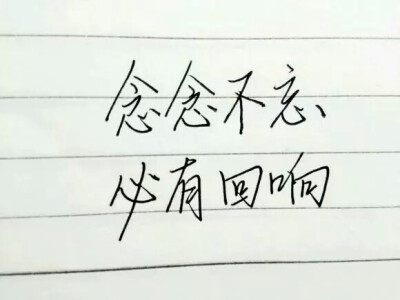 念念不忘
必有回响